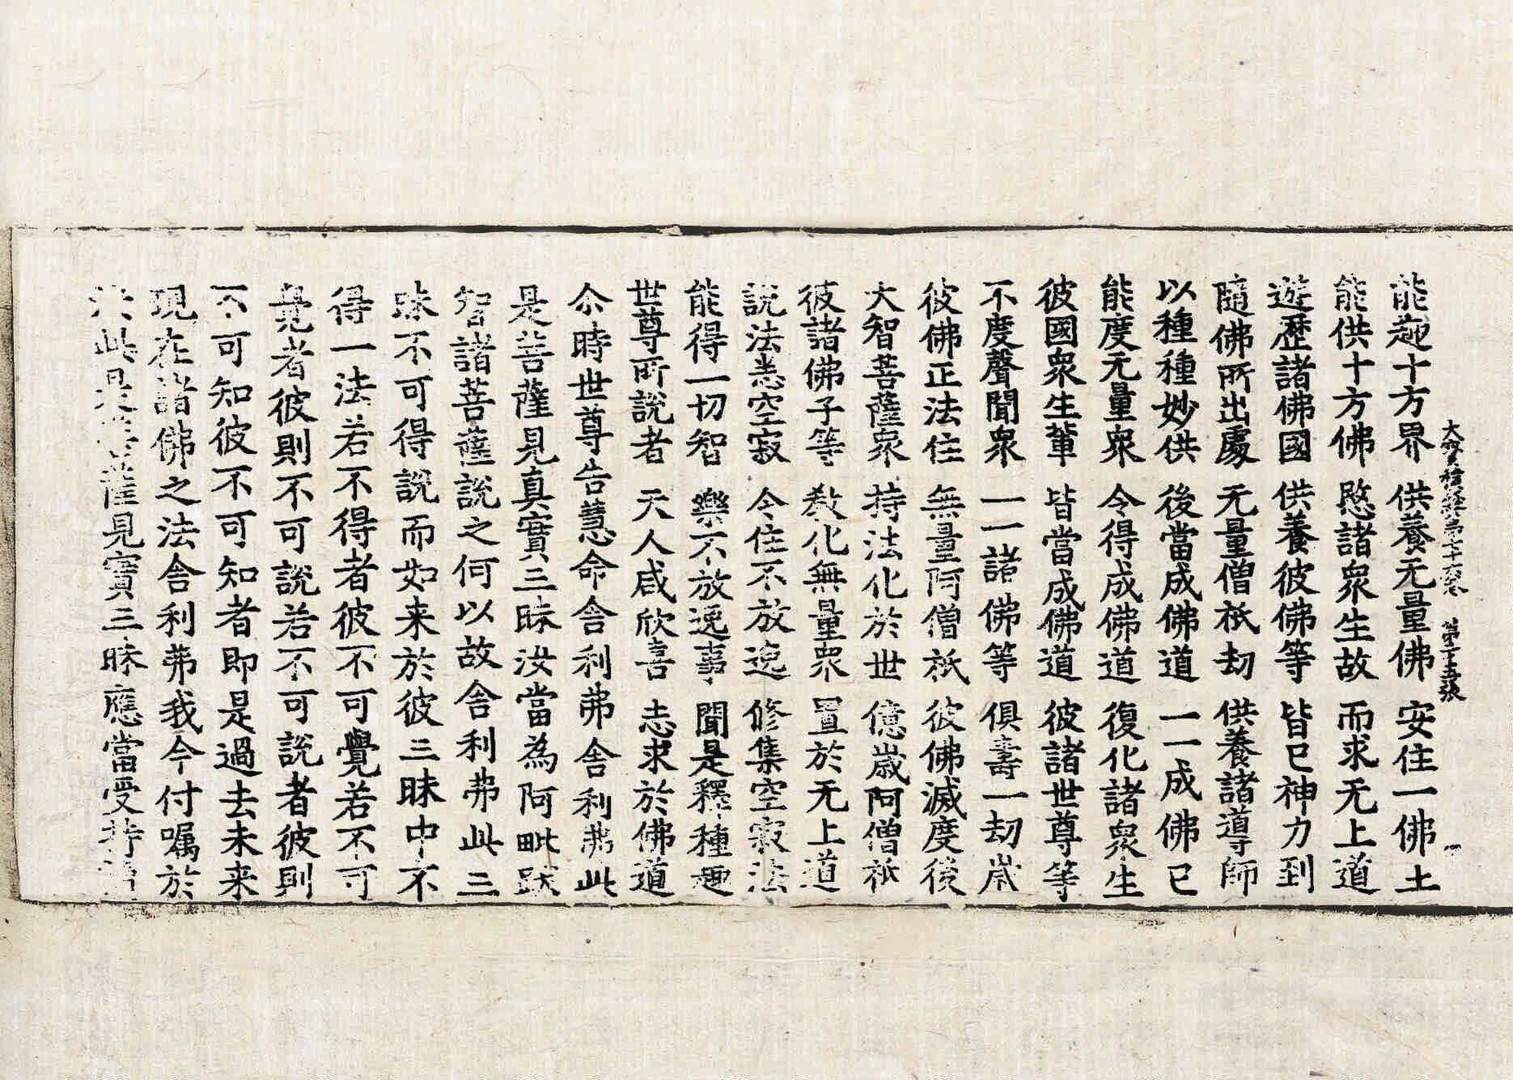 大寶積經第七十六卷 第十五張
能趣十方界 供養无量佛 安住一佛土
能供十方佛 愍諸衆生故 而求无上道
遊歷諸佛國 供養彼佛等 皆已神力到
隨佛所出處 无量僧祇劫 供養諸導師
以種種妙供 後當成佛道 一一成佛已
能度无量衆 令得成佛道 復化諸衆生
彼國衆生軰 皆當成佛道 彼諸世尊等
不度聲聞衆 一一諸佛等 俱壽一劫歲
彼佛正法住 無量阿僧祇 彼佛滅度後
大智菩薩衆 持法化於世 億歲阿僧祇
彼諸佛子等 教化無量衆 置於无上道
說法悉空寂 令住不放逸 修集空寂法
能得一切智 樂不放逸事 聞是釋種趣
世尊所說者 天人咸欣喜 志求於佛道
尒時世尊告慧命舍利弗舍利弗此
是菩薩見真實三昧汝當為阿毗跋
智諸菩薩說之何以故舍利弗此三
昧不可得說而如来於彼三昧中不
得一法若不得者彼不可覺若不可
覺者彼則不可說若不可說者彼則
不可知彼不可知者即是過去未来
現在諸佛之法舍利弗我今付嘱於
汝此是菩薩見實三昧應當受持